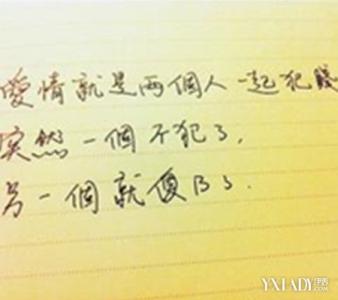 愛情就是兩個人一起犯賤
突然一個不犯了,
另一個就傻B了.
YXLADY.com